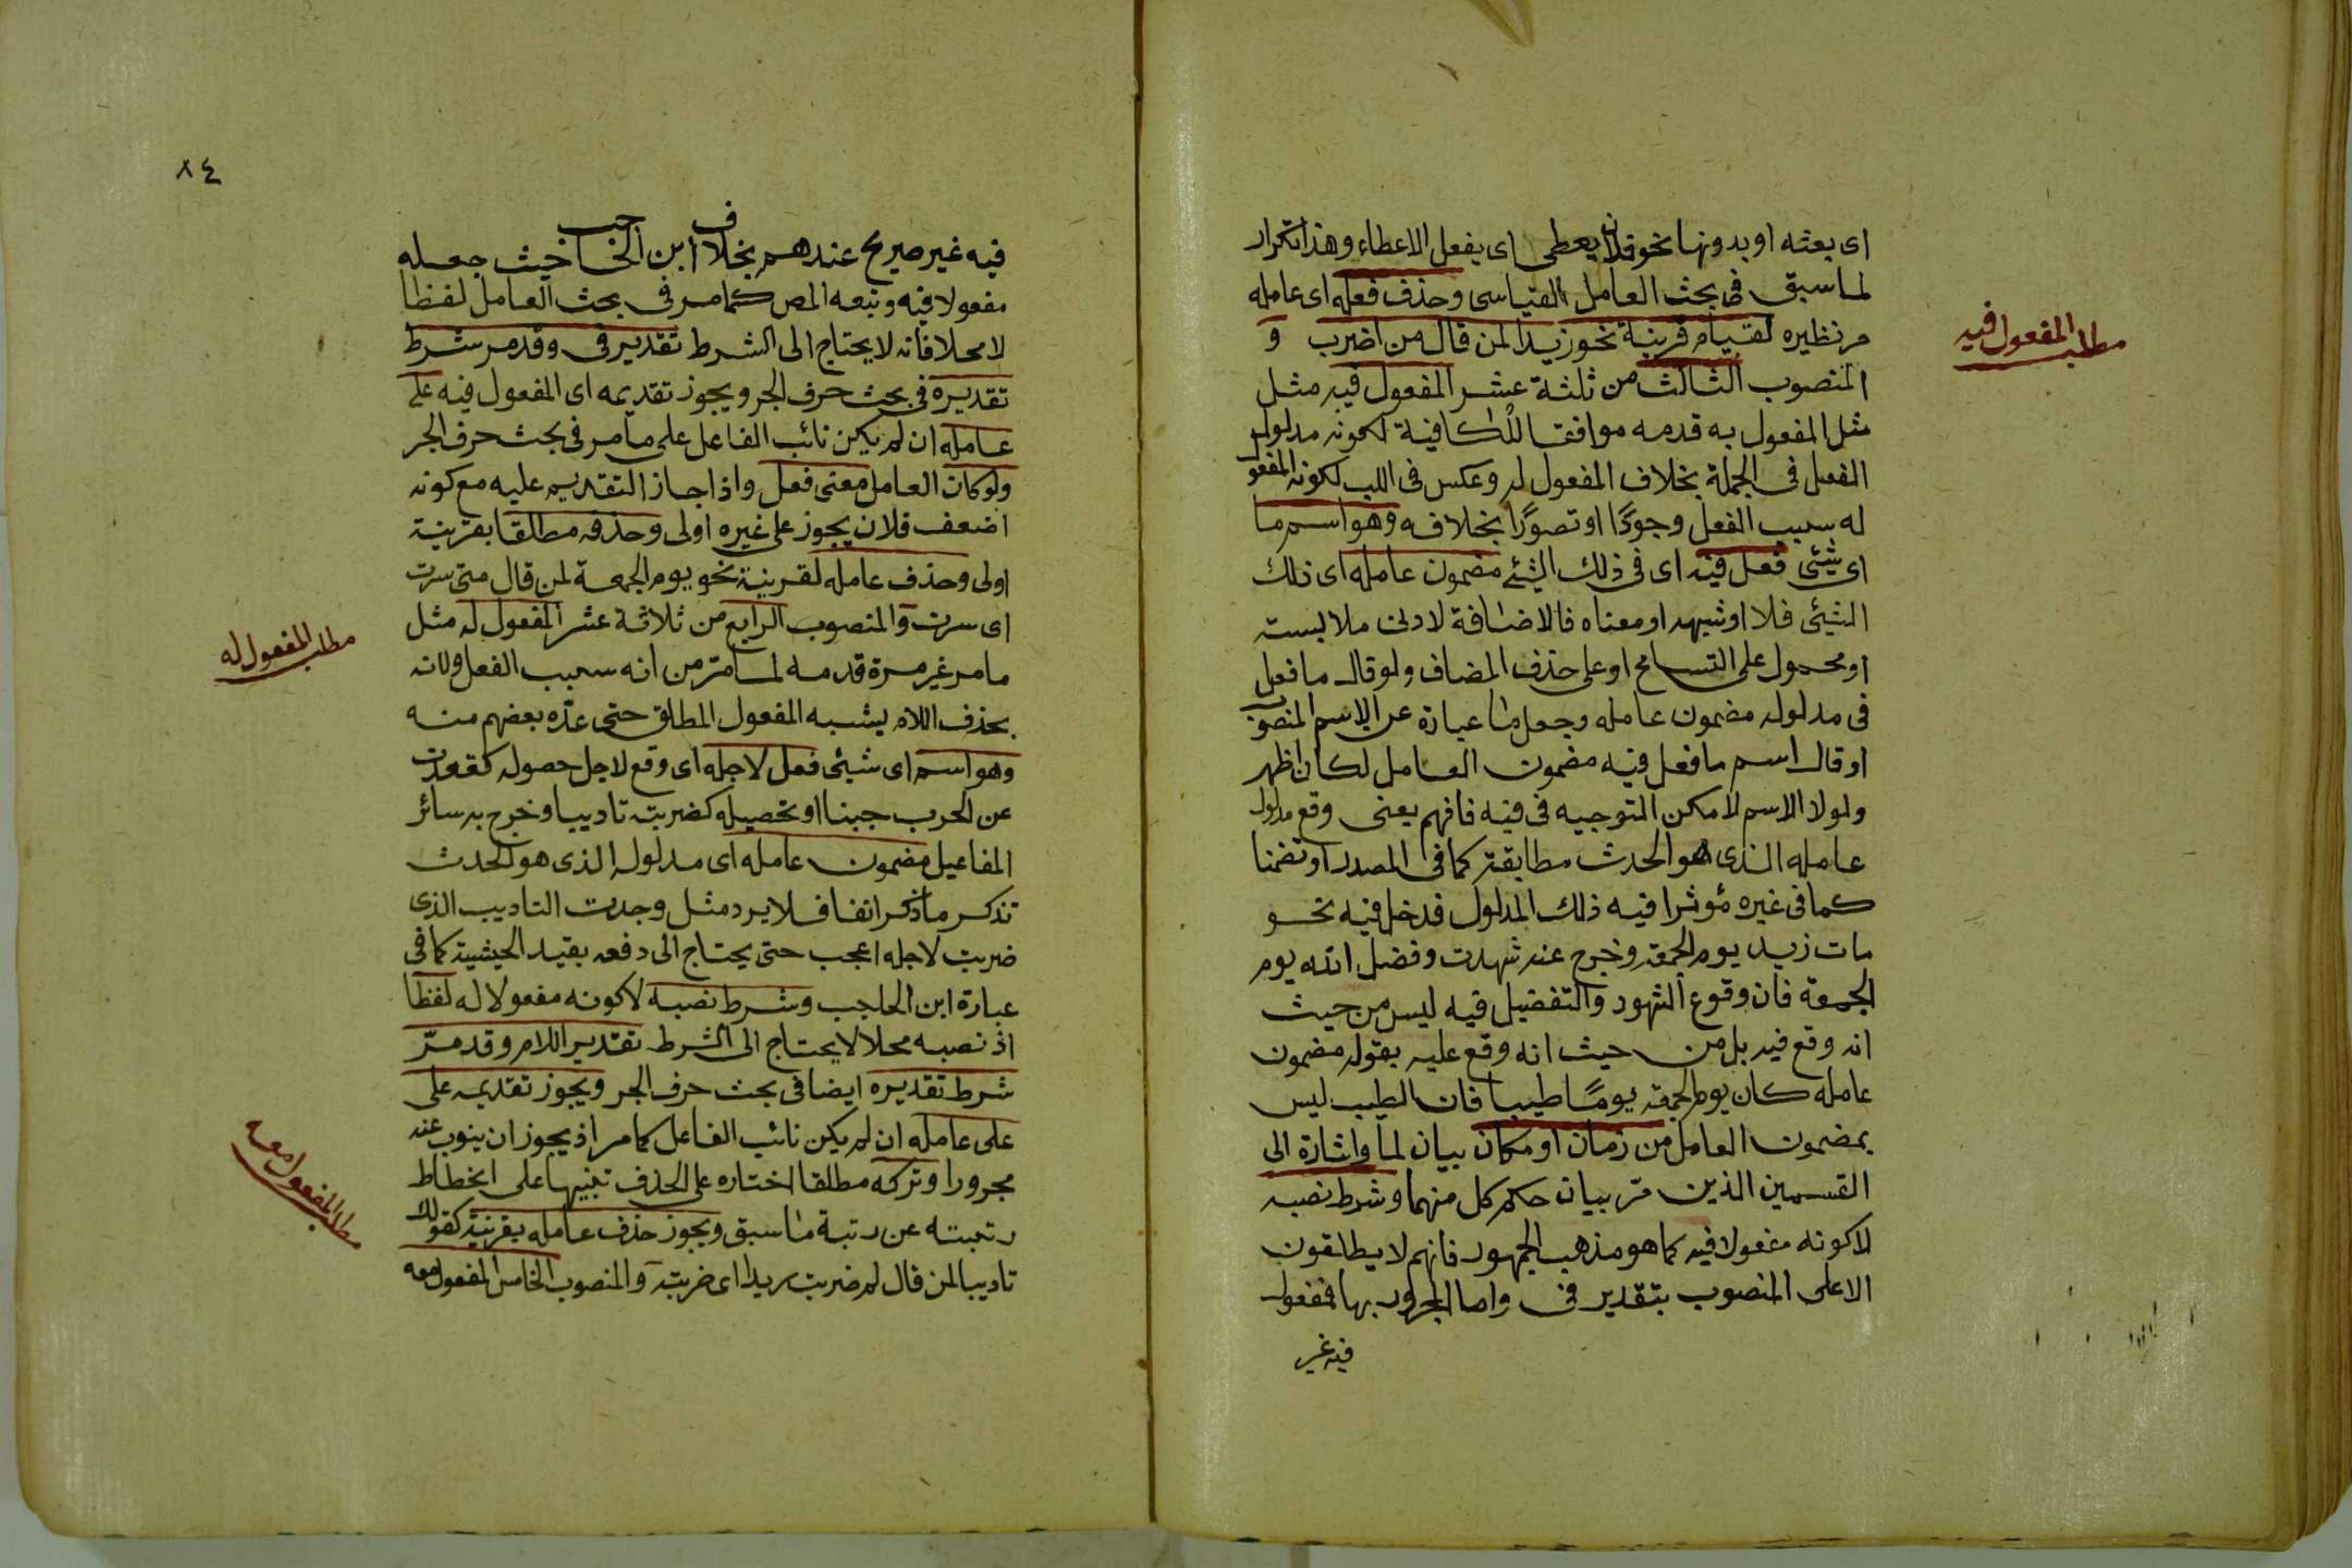 اى بعثه او بدونها نحو فلان يعطى اى يفعل الاعطاء وهذا تكرار
لما سبق فى بحث العامل القياسى وحذف فعله اى عامله
مر نظيره لقيام قرينة نحو زيدا لمن قال من اضرب و
المنصوب الثالث من ثلثة عشر المفعول فيه مثل
مثل المفعول به قدمه موافقا للكافية لكونه مدلول
الفعل فى الجملة بخلاف المفعول له وعكس فى اللب لكونه المفعو
له سبب الفعل وجودًا او تصورًا بخلافه وهو اسم ما
اى شئى فعل فيه اى فى ذلك الشئ مضمون عامله اى ذلك
الشئى فلا او شبهه او معناه فالاضافة لادنى ملابسته
او محمول على التسامح او على حذف المضاف ولو قال ما فعل
فى مدلوله مضمون عامله وجعل ما عبارة عن الاسم المنصوب
او قال اسم ما فعل فيه مضمون العامل لكان اظهر
ولولا الاسم لامكن التوجيه فى فيه فافهم يعنى وقع مدلول
عامله الذى هو الحدث مطابقة كما فى المصدر او تضمنا
كما فى غيره مؤثرا فيه ذلك المدلول فدخل فيه نحو
مات زيد يوم الجمعة وخرج عنه شهدت وفضل الله يوم
الجمعة فان وقوع الشهود والتفضيل فيه ليس من حيث
انه وقع فيه بل من حيث انه وقع عليه بقوله مضمون
عامله كان يوم الجمعة يومًا طيبا فان الطيب ليس
بمضمون العامل من زمان او مكان بيان لما واشارة الى
القسمين الذين مرّ بيان حكم كل منهما وشرط نصبه
لا كونه مفعولا فيه كما هو مذهب الجمهور فانهم لا يطلقون
الا على المنصوب بتقدير فى واما المجرور بها فمفعول
فيه غير
مطلب المفعول فيه
٨٤
فيه غير صريح عندهم بخلاف ابن الحاجب حيث جعله
مفعولا فيه وتبعه المص كما مر فى بحث العامل لفظا
لا محلا فانه لا يحتاج الى الشرط تقدير فى وقد مر شرط
تقديره فى بحث حرف الجر ويجوز تقديمه اى المفعول فيه على
عامله ان لم يكن نائب الفاعل على ما مر فى بحث حرف الجر
ولو كان العامل معنى فعل واذا جاز التقديم عليه مع كونه
اضعف فلان يجوز على غيره اولى وحذفه مطلقا بقرينة
اولى وحذف عامله لقرينة نحو يوم الجمعة لمن قال متى سرت
اى سرت والمنصوب الرابع من ثلاثة عشر المفعول له مثل
ما مر غير مرة قدمه لما مرّ من انه سبب الفعل ولانه
بحذف اللام يشبه المفعول المطلق حتى عدّه بعضهم منه
وهو اسم اى شيئى فعل لاجله اى وقع لاجل حصوله كقعدت
عن الحرب جبنا او تحصيله كضربته تاديبا وخرج به سائر
المفاعيل مضمون عامله اى مدلوله الذى هو الحدث
تذكر ما ذكر انفا فلا يرد مثل وجدت التاديب الذى
ضربت لاجله اعجب حتى يحتاج الى دفعه بقيد الحيثية كما فى
عبارة ابن الحاجب وشرط نصبه لا كونه مفعولا له لفظا
اذ نصبه محلا لا يحتاج الى الشرط تقدير اللام وقد مرّ
شرط تقديره ايضا فى بحث حرف الجر ويجوز تقديمه على
على عامله ان لم يكن نائب الفاعل كما مر اذ يجوز ان ينوب عنه
مجرورا وتركه مطلقا اختاره على الحذف تنبيها على انحطاط
رتبته عن رتبة ما سبق ويجوز حذف عامله بقرينة كقولك
تاديبا لمن قال لم ضربت زيدا اى ضربته والمنصوب الخامس المفعول معه
مطلب المفعول له
مطلب المفعول معه